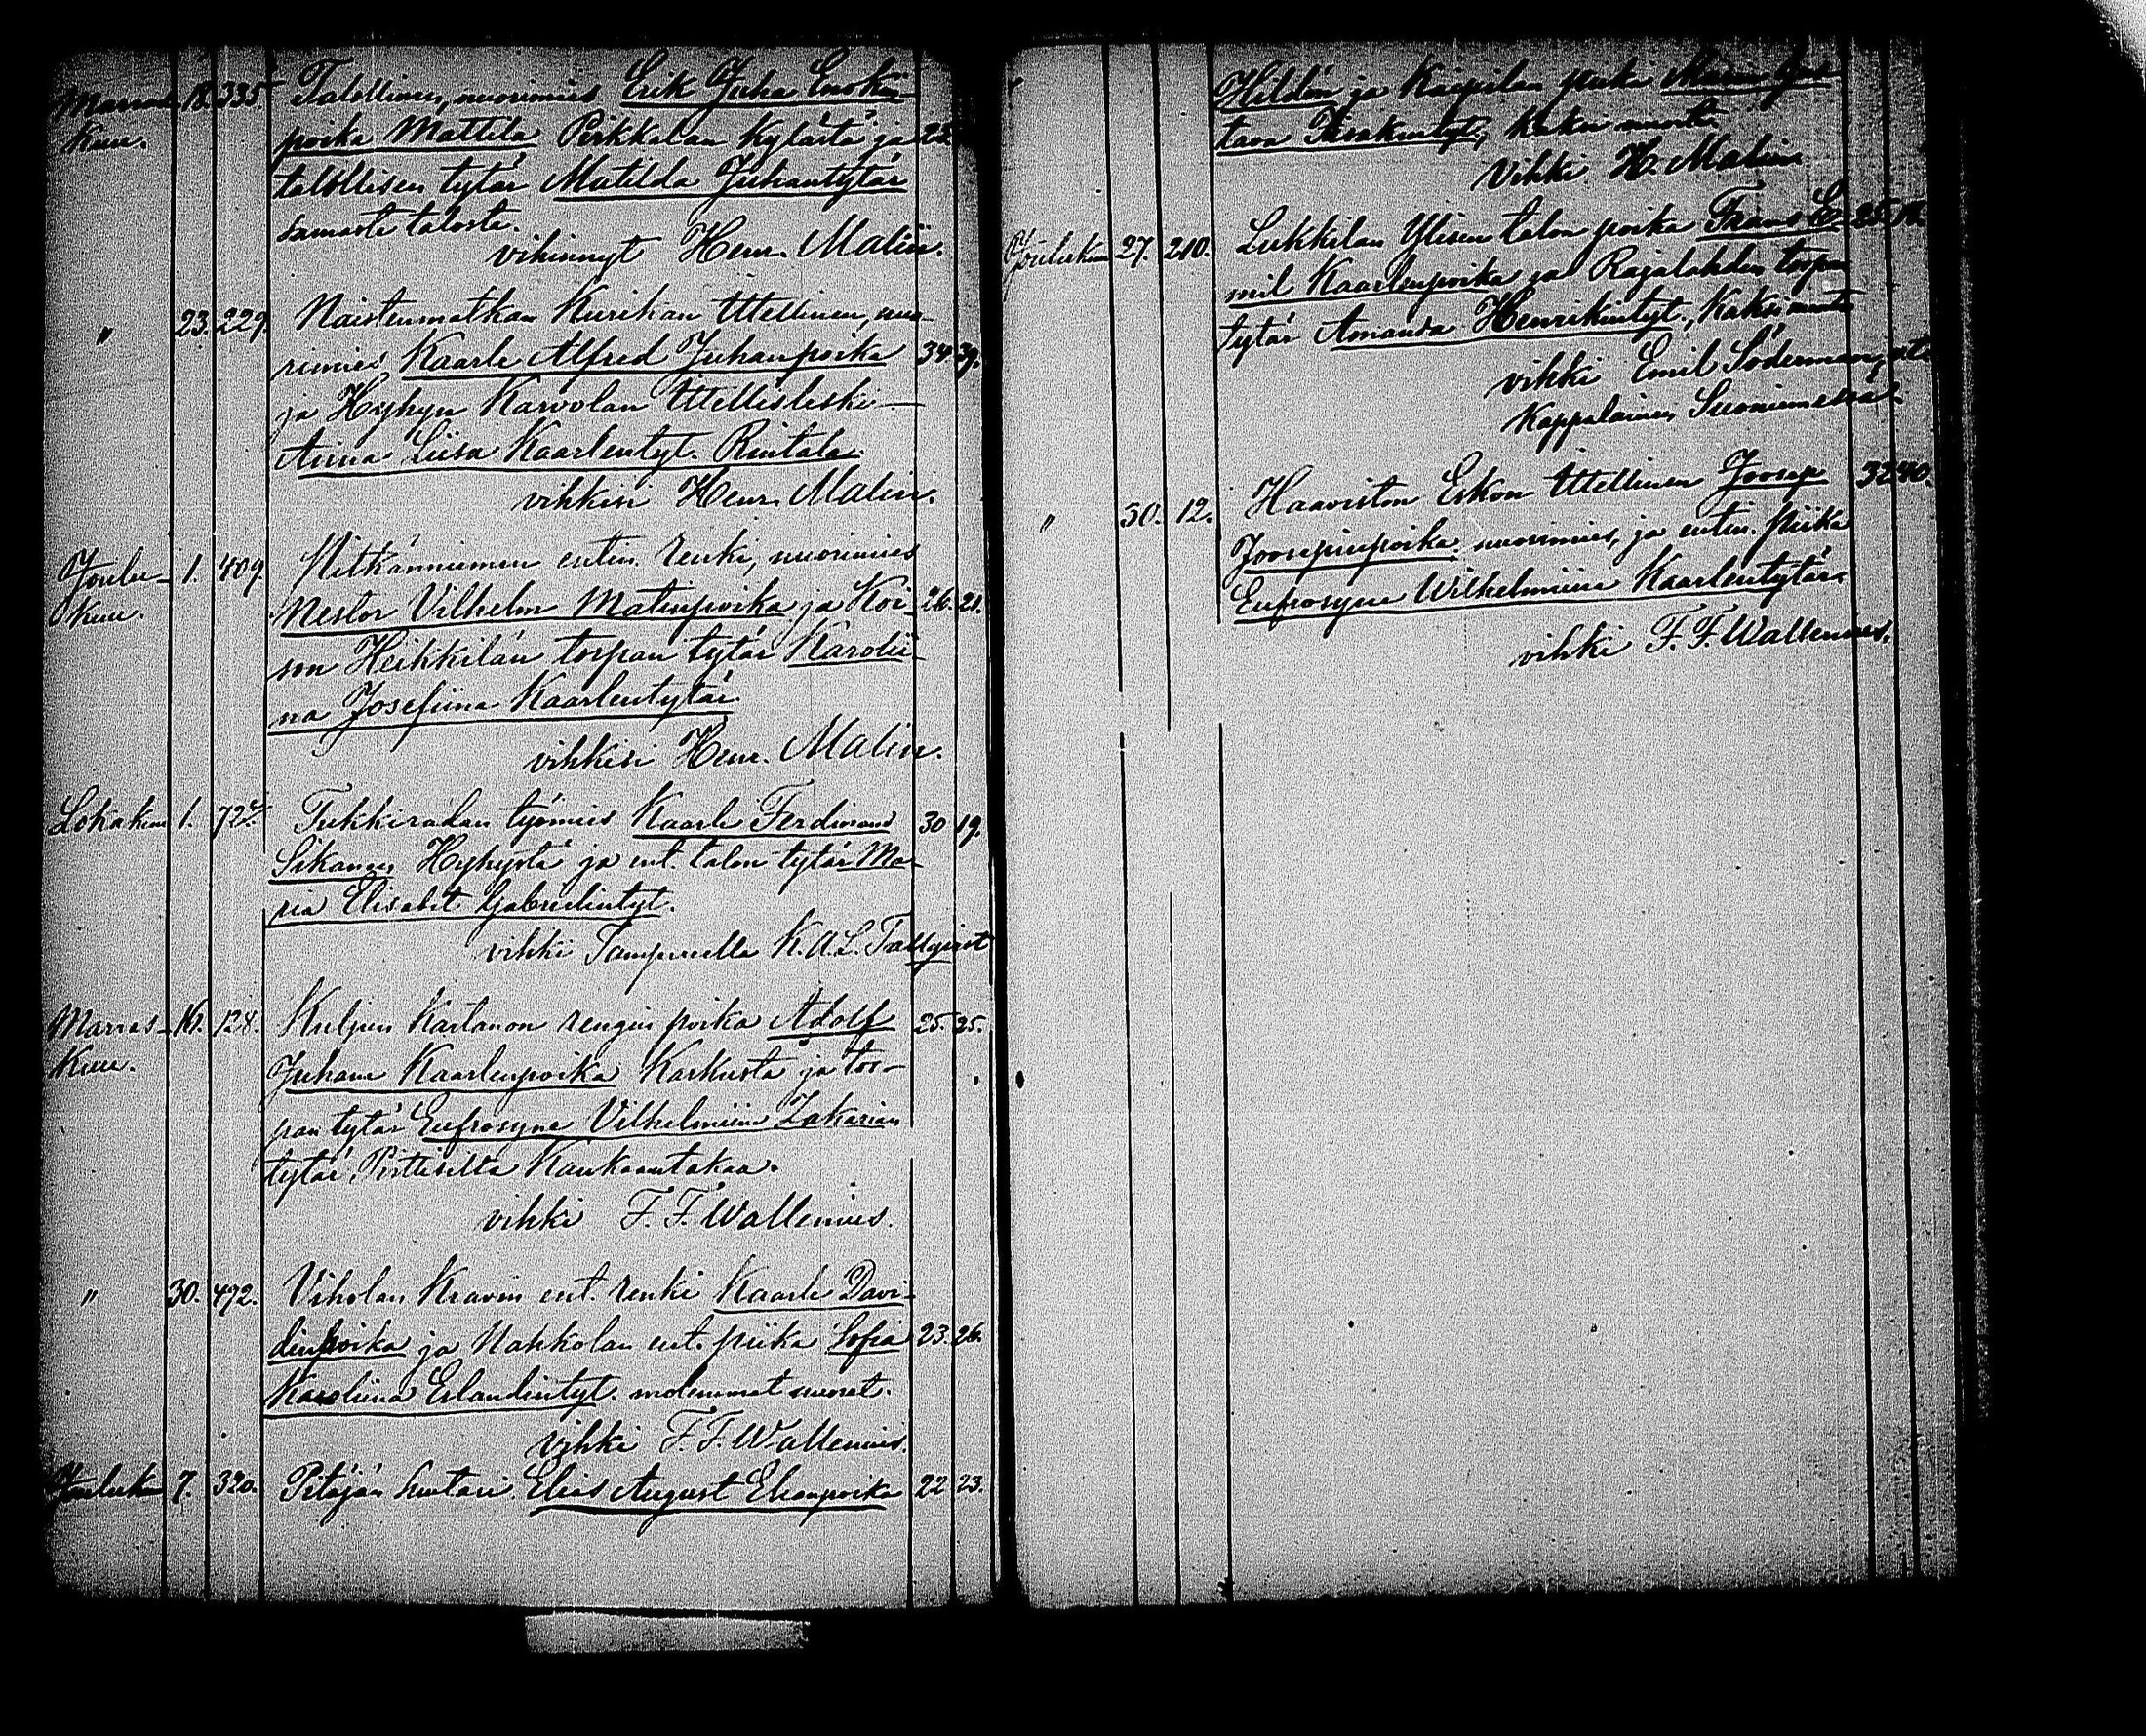 Marras- 18. 335 Talollinen, nuorimies Erik Juha Enokin-
kuu. poika Mattila Pirkkalan kylästä ja 22
talollisen tytär Matilda Juhantytär
samasta talosta.
vihinnyt Henr. Malin.
" 23. 229. Naistenmatkan Kurikan ittellinen, nuo-
rimies Kaarle Alfred Juhanpoika 34 39.
ja Hyhyn Karvolan ittellisleski
Anna Liisa Kaarlentyt. Rintala.
vihkisi Henr. Malin.
Joulu- 1. 409. Pitkänniemen entin. renki, nuorimies
kuu. Nestor Vilhelm Matinpoika ja Koi- 26. 21.
son Heikkilän torpan tytär Karolii-
na Josefiina Kaarlentytär
vihkisi Henr. Malin.
Lokakuu 1. 72 Tukkiradan työmies Kaarle Ferdinand 30 19.
Sikanen Hyhystä ja ent. talon tytär Ma-
ria Elisabet Gabrielintyt.
vihki Tampereella K. A. L. Tallqvist
Marras- 16. 128. Kuljun Kartanon rengin poika Adolf 25. 25.
kuu. Juhani Kaarlenpoika Karkusta ja tor-
pan tytär Eufrosyne Vilhelmiina Zakarian
tytär, Kankaantakaa.
vihki F. F. Wallenius.
" 30. 492. Viholan Kravin ent. renki Kaarle Davi-
dinpoika ja Nahkolan ent. piika Sofia 23. 26.
Karoliina Erlandintyt. molemmat nuoret.
vihki F. F. Wallenius.
Jouluk 7. 320. Pitäjän suutari Elias August Elianpoika 22 23.
Heldén ja Kaipilan piika
tava Iisakintyt., kaksi nuorta.
Vihki H. Malin
Joulukuu 27. 210. Lukkilan Ylisen talon poika Frans E- 25
mil Kaarlenpoika ja Rajalahden torpan
tytär Amanda Henrikintyt., kaksi nuorta
vihki Emil Söderman, vt.
Kappalainen Suoniemessä.
" 30. 12. Haaviston Eskon ittellinen Joosep 32 40.
Joosepinpoika nuorimies, ja entin. piika
Eufrosyne Wilhelmiina Kaarlentytär.
vihki F. F. Wallenius.